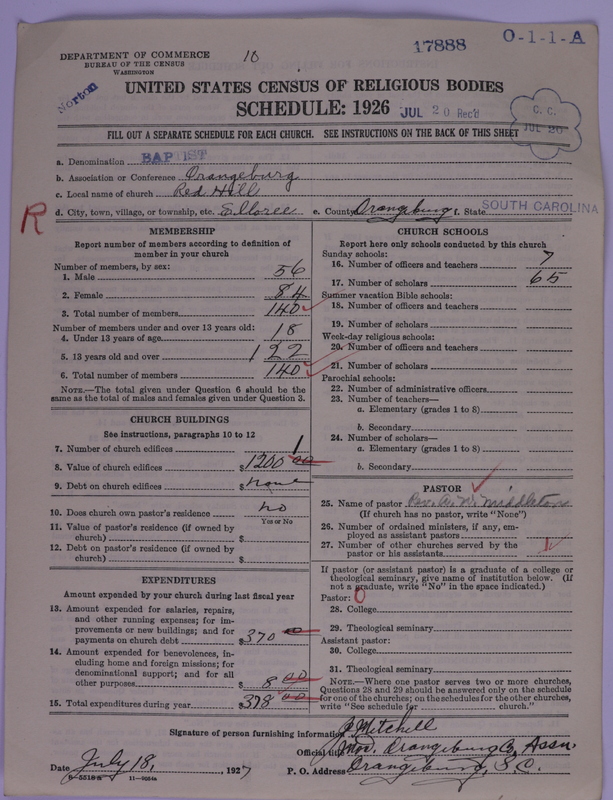 DEPARTMENT OF COMMERCE
BUREAU OF THE CENSUS
WASHINGTON
10
17888
O-1-1-A
Norton
UNITED STATES CENSUS OF RELIGIOUS BODIES
SCHEDULE: 1926
JUL 20 Rec'd
C. C.
JUL 20
FILL OUT A SEPARATE SCHEDULE FOR EACH CHURCH. SEE INSTRUCTIONS ON THE BACK OF THIS SHEET
a. Denomination BAPTIST
b. Association or Conference Orangeburg
c. Local name of church Red Hill
R
d. City, town, village, or township, etc. Elloree e. County Orangeburg f. State SOUTH CAROLINA
MEMBERSHIP
Report number of members according to definition of
member in your church
Number of members, by sex:
1. Male 56
2. Female 84
3. Total number of members 140
Number of members under and over 13 years old:
4. Under 13 years of age 18
5. 13 years old and over 122
6. Total number of members 140
NOTE.—The total given under Question 6 should be the
same as the total of males and females given under Question 3.
CHURCH BUILDINGS
See instructions, paragraphs 10 to 12
7. Number of church edifices 1
8. Value of church edifices $1200 00
9. Debt on church edifices $none
10. Does church own pastor's residence no
Yes or No
11. Value of pastor's residence (if owned by
church) $
12. Debt on pastor's residence (if owned by
church) $
EXPENDITURES
Amount expended by your church during last fiscal year
13. Amount expended for salaries, repairs,
and other running expenses; for im-
provements or new buildings; and for
payments on church debt $370
14. Amount expended for benevolences, in-
cluding home and foreign missions; for
denominational support; and for all
other purposes $8 00
15. Total expenditures during year $378 00
CHURCH SCHOOLS
Report here only schools conducted by this church
Sunday schools:
16. Number of officers and teachers 7
17. Number of scholars 65
Summer vacation Bible schools:
18. Number of officers and teachers
19. Number of scholars
Week-day religious schools:
20. Number of officers and teachers
21. Number of scholars
Parochial schools:
22. Number of administrative officers
23. Number of teachers—
a. Elementary (grades 1 to 8)
b. Secondary
24. Number of scholars—
a. Elementary (grades 1 to 8)
b. Secondary
PASTOR
25. Name of pastor Rev. A. W. Middleton
(If church has no pastor, write "None")
26. Number of ordained ministers, if any, em-
ployed as assistant pastors
27. Number of other churches served by the
pastor or his assistants
If pastor (or assistant pastor) is a graduate of a college or
theological seminary, give name of institution below. (If
not a graduate, write "No" in the space indicated.)
Pastor: 0
28. College
29. Theological seminary
Assistant pastor:
30. College
31. Theological seminary
NOTE.—Where one pastor serves two or more churches,
Questions 28 and 29 should be answered only on the schedule
for one of the churches; on the schedules for the other churches,
write "See schedule for church."
Signature of person furnishing information Mitchell
Official title Mod. Orangeburg Co, Assn
Date July 18, 1927 P. O. Address Orangeburg, S. C.